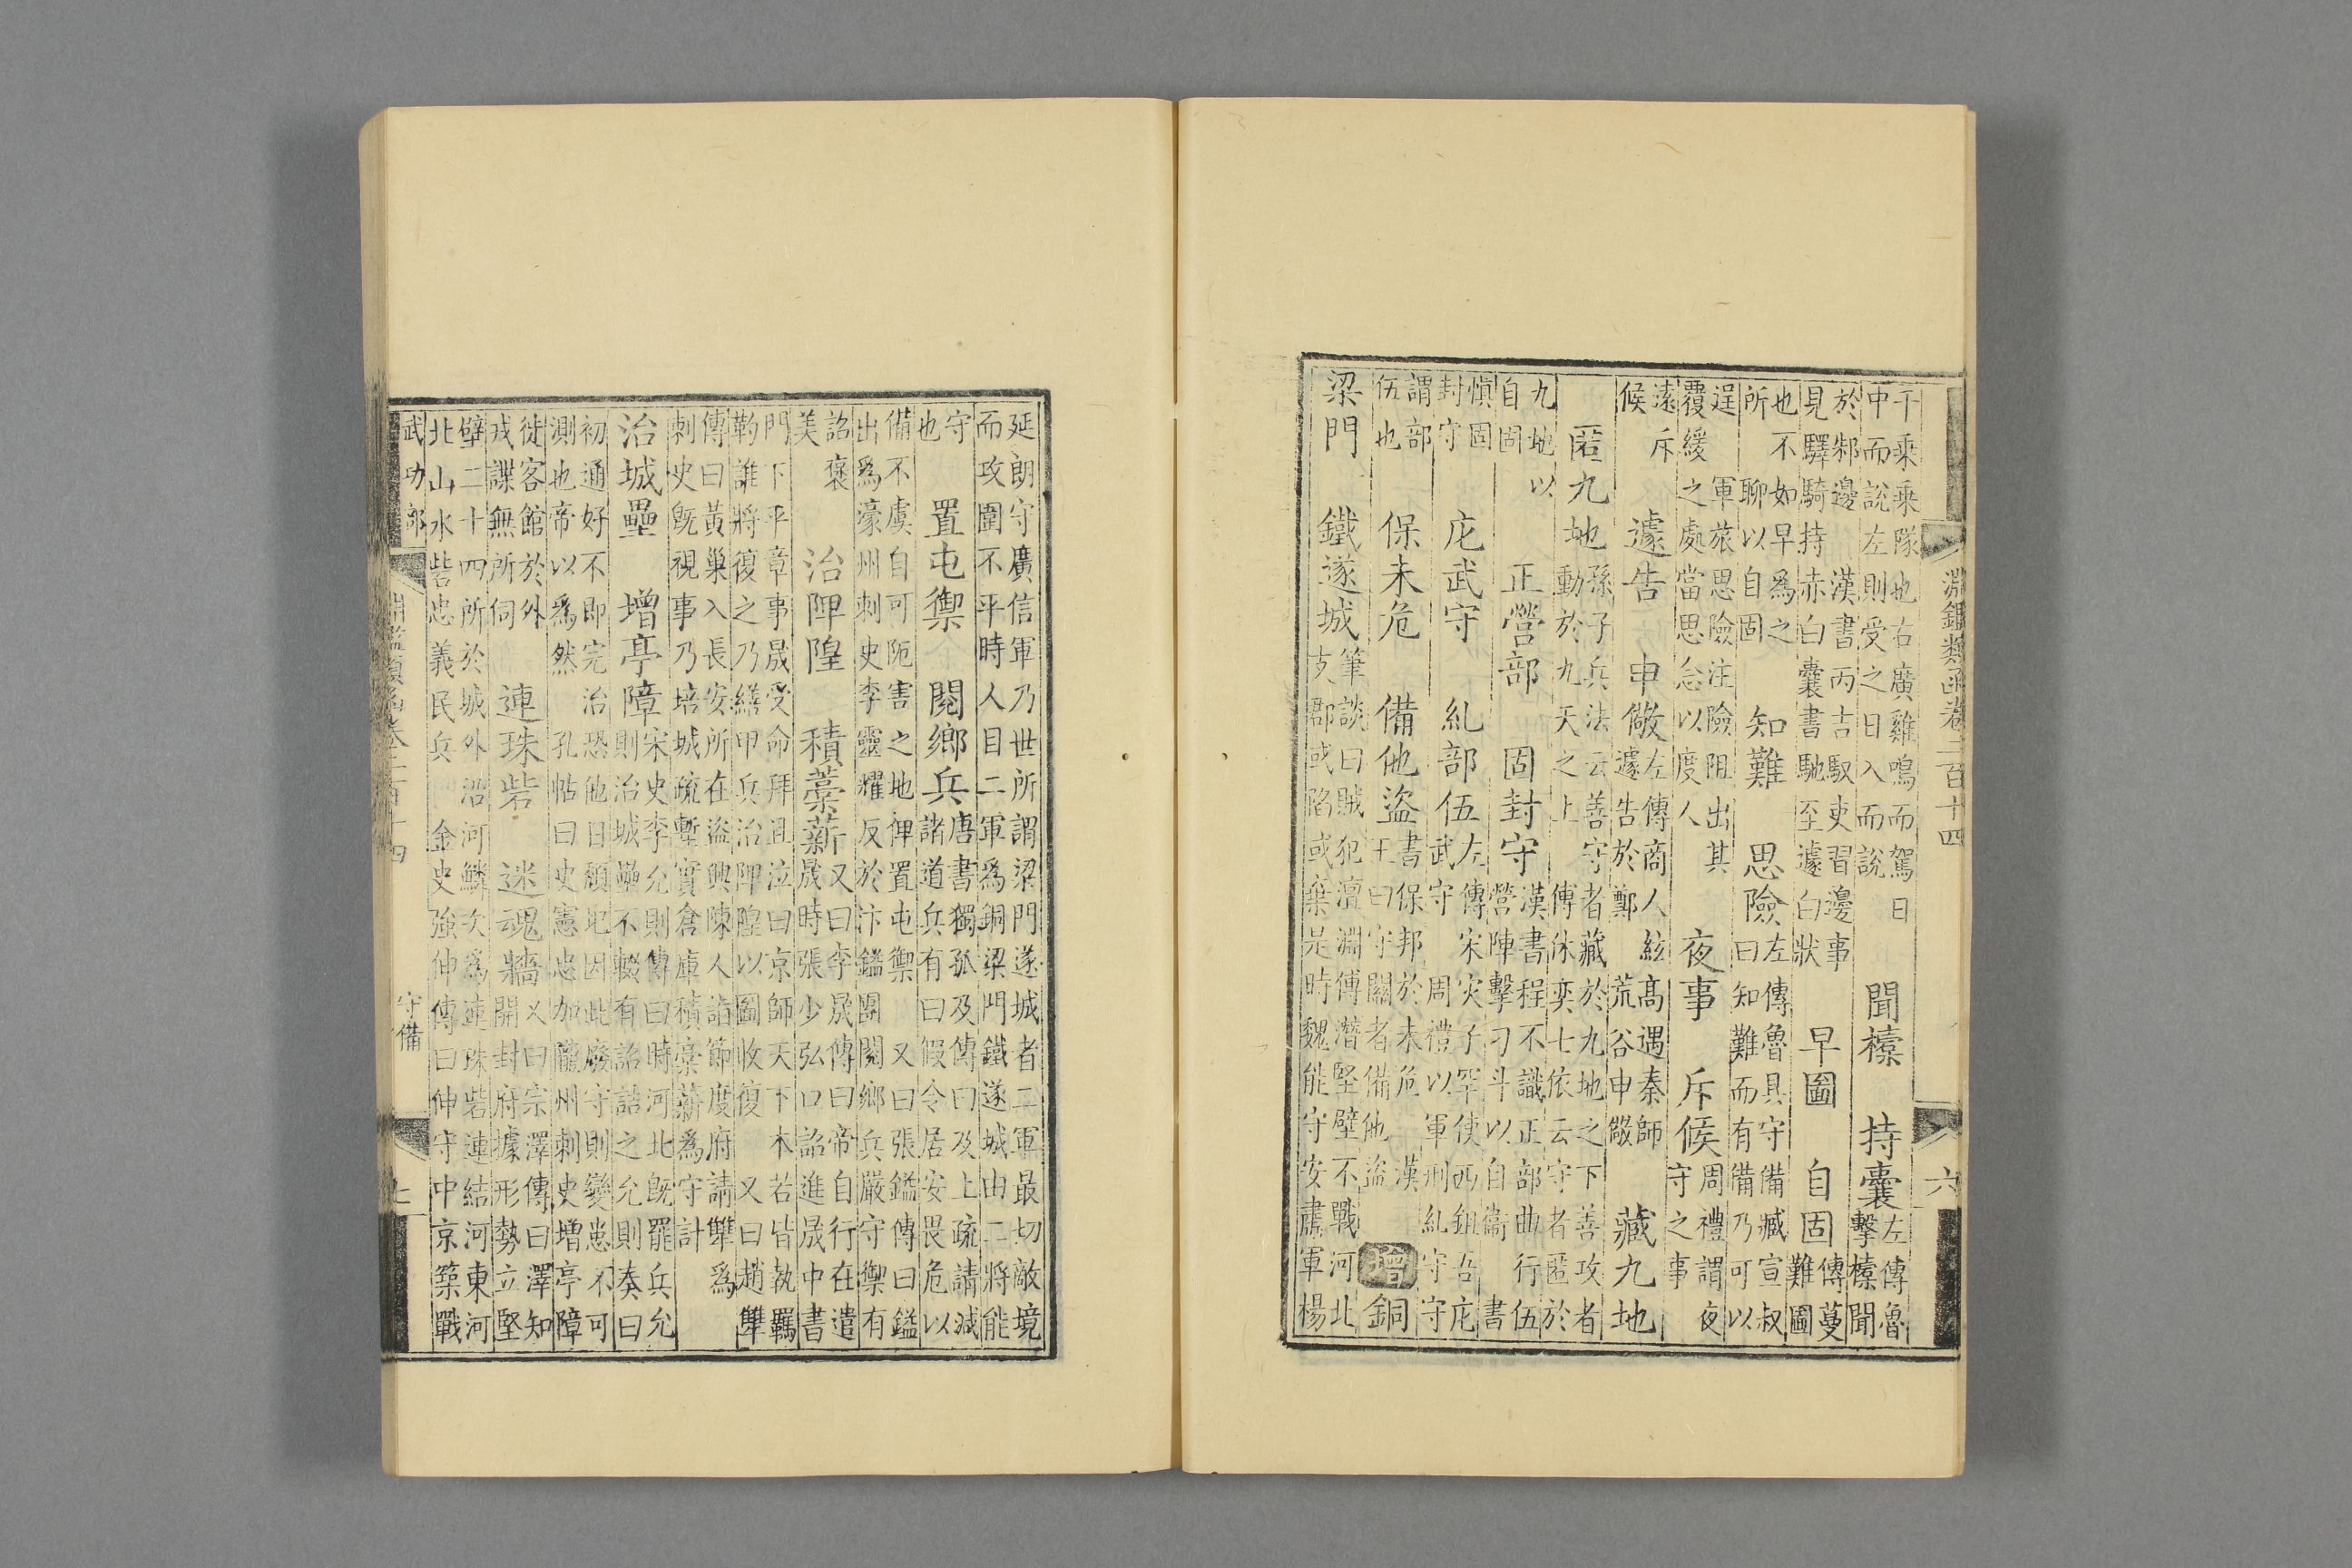 淵鑑類函卷二百十四 六
千乘乘隊也右廣雞鳴而駕日
中而說左則受之日入而說
聞㯓 持囊
左傳魯
擊㯓聞
於邾邊 漢書丙吉馭吏習邊事
見驛騎持赤白囊書馳至遽白狀
早圖 自固
傳蔓
難圖
也不如早爲之
所聊以自固
知難 思險
左傳魯具守備臧宣叔
曰知難而有備乃可以
逞 軍旅思險注險阻出其
覆緩之處當思念以度人
夜事 斥候
周禮謂夜
守之事
遠斥
候
遽告 申儆
左傳商人絃高遇秦師
遽告於鄭 荒谷申儆
藏九地
匿九地
孫子兵法云善守者藏於九地之下善攻者
動於九天之上 傅休奕七依云守者匿於
九地以
自固
正營部 固封守
漢書程不識正部曲行伍
營陣擊刁斗以自衛 書
慎固
封守
庀武守 糺部伍
左傳宋灾子罕使西鉏吾庀
武守 周禮以軍刑糺守守
謂部
伍也
保未危 備他盜
書保邦於未危 漢
王曰守關者備他盜
增 銅
梁門 鐵遂城
筆談曰賊犯澶淵傅潛堅壁不戰河北
支郡或陷或棄是時魏能守安肅軍楊
延朗守廣信軍乃世所謂梁門遂城者二軍最切敵境
而攻圍不平時人目二軍爲銅梁門鐵遂城由二將能
守
也
置屯禦 閱鄉兵
唐書獨孤及傳曰及上疏請減
諸道兵有曰假令居安畏危以
備不虞自可阨害之地俾置屯禦 又曰張鎰傳曰鎰
出爲濠州刺史李靈耀反於汴鎰團閱鄉兵嚴守禦有
詔褒
美
治陴隍 積藁薪
又曰李晟傳曰帝自行在遣
晟時張少弘口詔進晟中書
門下平章事晟受命拜且泣曰京師天下本若皆執羈
靮誰將復之乃繕甲兵治陴隍以圖收復 又曰趙犨
傳曰黃巢入長安所在盜興陳人詣節度府請犨爲
刺史旣視事乃培城疏塹實倉庫積藁薪爲守計
治城壘 增亭障
宋史李允則傳曰時河北旣罷兵允
則治城壘不輟有詔詰之允則奏曰
初通好不即完治恐他日頹圮因此廢守則變患不可
測也帝以爲然 孔帖曰史憲忠加隴州刺史增亭障
徙客館於外
戎諜無所伺
連珠砦 迷魂牆
又曰宗澤傳曰澤知
開封府據形勢立堅
壁二十四所於城外沿河鱗次爲連珠砦連結河東河
北山水砦忠義民兵 金史強伸傳曰伸守中京築戰
武功部 淵鑑類函卷二百十四 守備 七